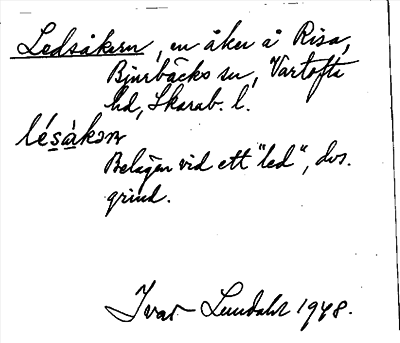 Ledsåkern, en åker å Risa,
Bjurbäcks sn, Vartofta
hd, Skarab. l.
lésåkən
Belägen vid ett "led", dvs.
grind.
Ivar Lundahl 1948.